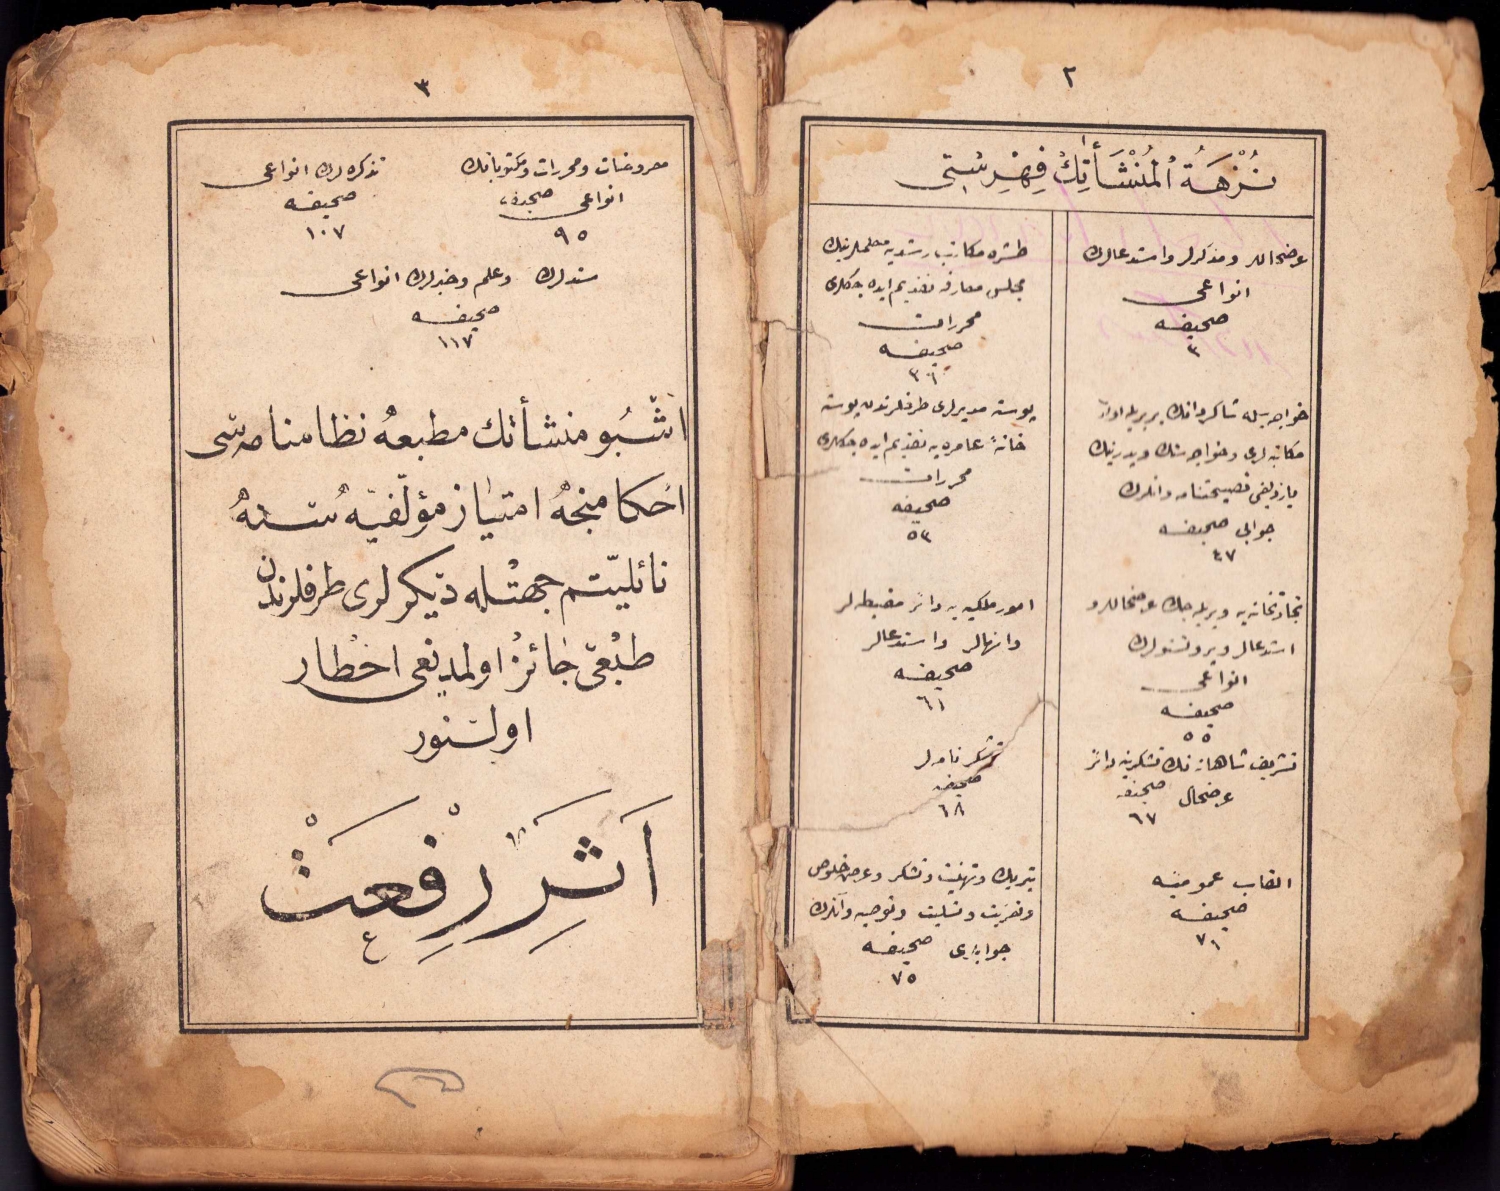 ٢
نُزْهَةُ الْمُنْشَأٰتِكْ فِهْرِسْتِى
عرضحاللر ومذكرلر واستدعالرك
انواعى
صحيفه
٣
خواجه يه شاكردانك بربريله اولان
مكاتبه لرى وخواجه سنك وپدرينك
يازديغى نصيحتنامه وانلرك
جوابى صحيفه
٤٧
تجارتخانه يه ويريله جك عرضحاللر و
استدعالر وپروتستولرك
انواعى
صحيفه
٥٥
تشريف شاهانه نك تشكرينه دائر
عرضحال صحيفه
٦٧
القاب عموميه
صحيفه
٧١
طشره مكاتب رشديه معلملرينك
مجلس معارفه تقديم ايده جكلرى
محررات
صحيفه
٣٦
پوسته مديرلرى طرفلرندن پوسته
خانهٔ عامره يه تقديم ايده جكلرى
محررات
صحيفه
٥٣
امور ملكيه يه دائر مضبطه لر
وانهالر واستدعالر
صحيفه
٦١
تشكرنامه لر
صحيفه
٦٨
تبريك وتهنيت وتشكر وعرض خلوص
وتعزيت وتسليت وتوصيه وآنلرك
جوابلرى صحيفه
٧٥
٣
معروضات ومحررات ومكتوباتك
انواعى صحيفه
٩٥
تذكره لرك انواعى
صحيفه
١٠٧
سندلرك وعلم وخبرلرك انواعى
صحيفه
١١٧
اشبو منشأتك مطبعه نظامنامه سى
احكامنجه امتياز مؤلفيه سنه
نائليتم جهتله ديكرلرى طرفلرندن
طبعى جائز اولمديغى اخطار
اولنور
اَثَرِ رِفْعَتْ